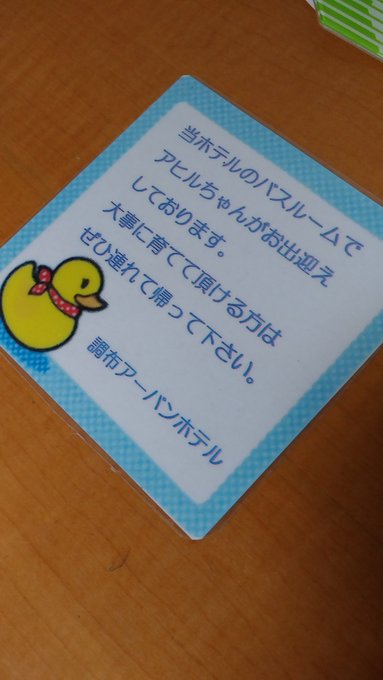 当ホテルのバスルームで
アヒルちゃんがお出迎え
しております。
大事に育てて頂ける方は
ぜひ連れて帰って下さい。
調布アーバンホテル